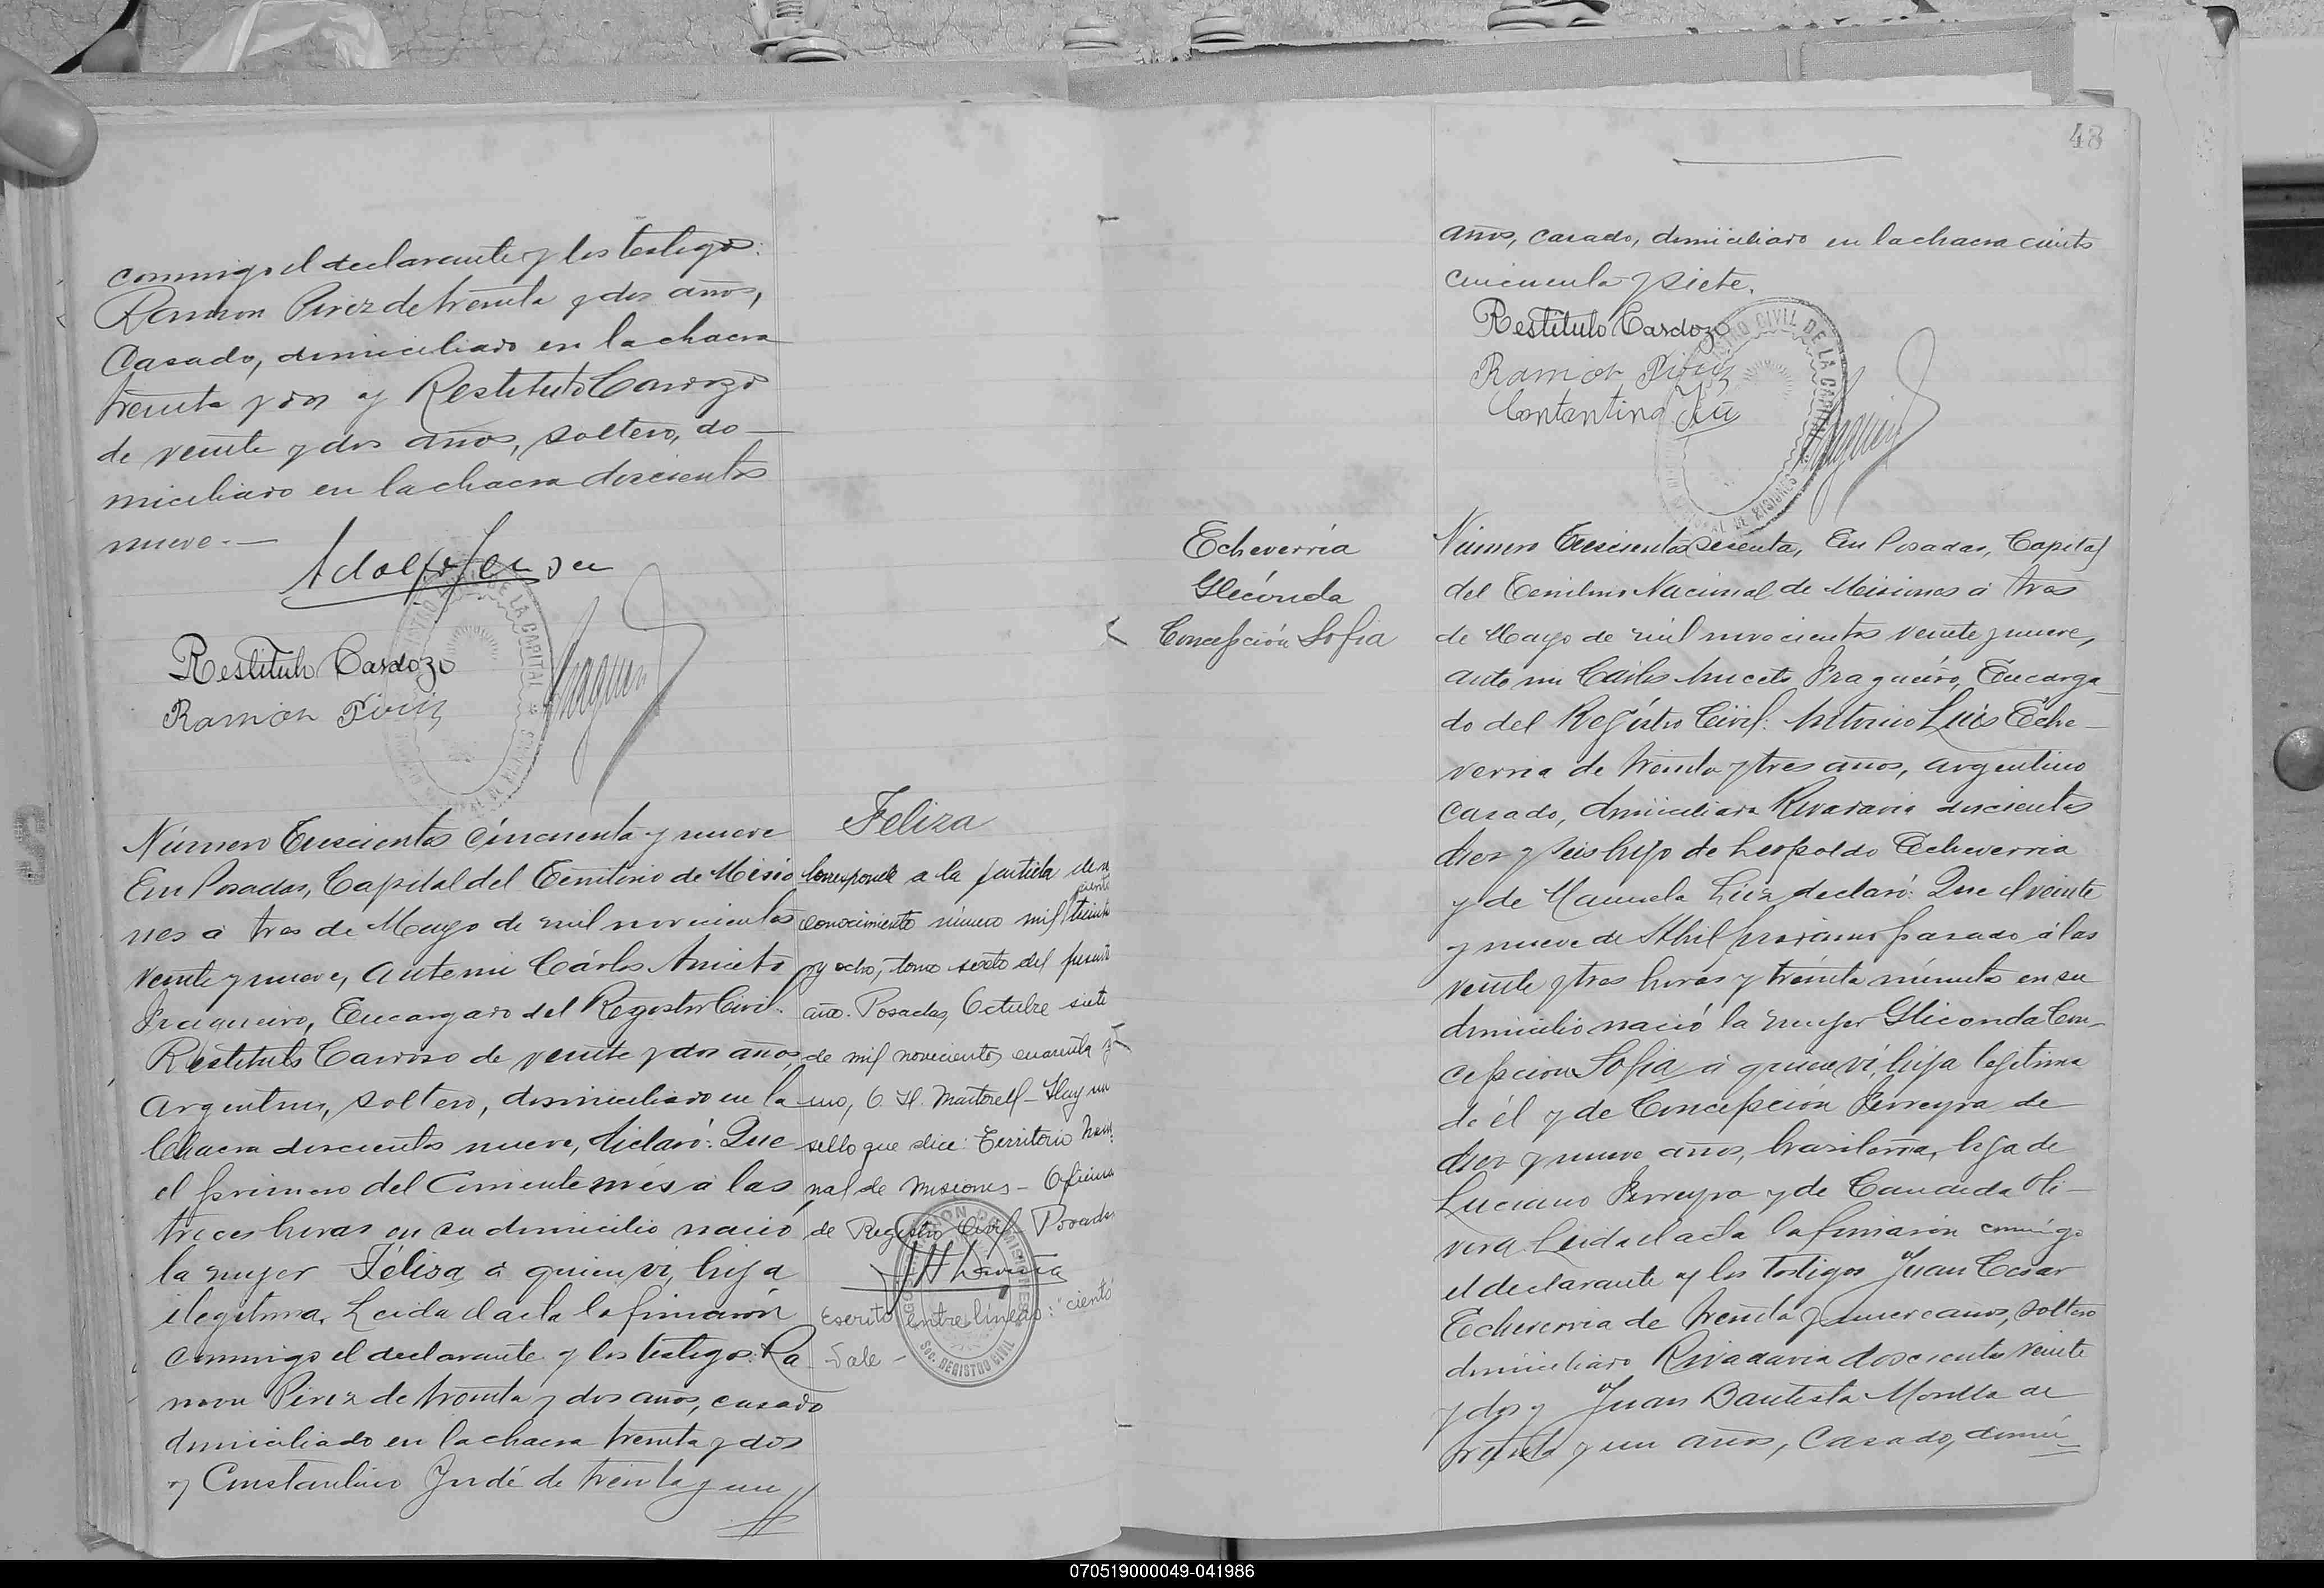 conmigo el declarante y los testigos:
Ramon Pirez de treinta y dos años,
Casado, domiciliado en la chacra
treinta y dos y Restituto Cardozo
de veinte y dos años, soltero, do—
miciliado en la chacra doscientos
nueve.—
Adolfo Jensen
Restituto Cardozo
Ramon Piriz
Número Trescientos cincuenta y nueve
En Posadas, Capital del Territorio de Misio
nes á tres de Mayo de mil novecientos
veinte y nueve, ante mi Cárlos Aniceto
Fragueiro, Encargado del Registro Civil:
Restituto Cardoso de veinte y dos años,
argentino, soltero, domiciliado en la
Chacra doscientos nueve, declaró: Que
el primero del corriente més á las
treces horas en su domicilio nació
la mujer Féliza á quien ví, hija
ilegítima. Leida el acta la firmarón
conmigo el declarante y los testigos: Ra
mon Pirez de treinta y dos años, casado
domiciliado en la chacra treinta y dos
y Constantino Judé de treinta y un
Feliza
Corresponde a la partida de re
ciento
conocimiento número mil treinta
y ocho, tomo sexto del presente
año. Posadas, Octubre siete
de mil novecientos cuarenta y
uno, C. H. Martorell – Hay un
sello que dice: Territorio Nacio
nal de Misiones – Oficina
de Registro Civil Posadas
Escrito entre líneas: "ciento"
Vale –
SEC. REGISTRO CIVIL
48
años, casado, domiciliado en la chacra ciento
cincuenta y siete.
Restituto Cardozo
Ramon Piriz
Contantino
REGISTRO CIVIL DE LA CAPITAL
Echeverría
Gleconda
Concepción Sofia
Número Trescientos sesenta, En Posadas, Capital
del Territorio Nacional de Misiones á tres
de Mayo de mil novecientos veinte y nueve,
ante mi Cárlos Aniceto Fragueiro, Encarga—
do del Regístro Civil: Antonio Luis Eche—
verria de treinta y tres años, argentino
casado, domiciliado Rivadavia doscientos
diez y seis hijo de Leopoldo Echeverria
y de Manuela Luz declaró: Que el veinte
y nueve de Abril próximo pasado á las
veinte y tres horas y treinta minutos en su
domicilio nació la mujer Gliconda Con—
cepcion Sofia á quien ví, hija legítima
de él y de Concepción Perreyra de
diez y nueve años, brasileña, hija de
Luciano Perreyra y de Candida Oli—
vera. Leida el acta la firmarón conmigo
el declarante y los testigos Juan Cesar
Echeverria de treinta y nueve anos, soltero
domiciliado Rivadavia doscientos veinte
y dos y Juan Bautista Morilla de
treinta y un años, Casado, domi
070519000049-041986